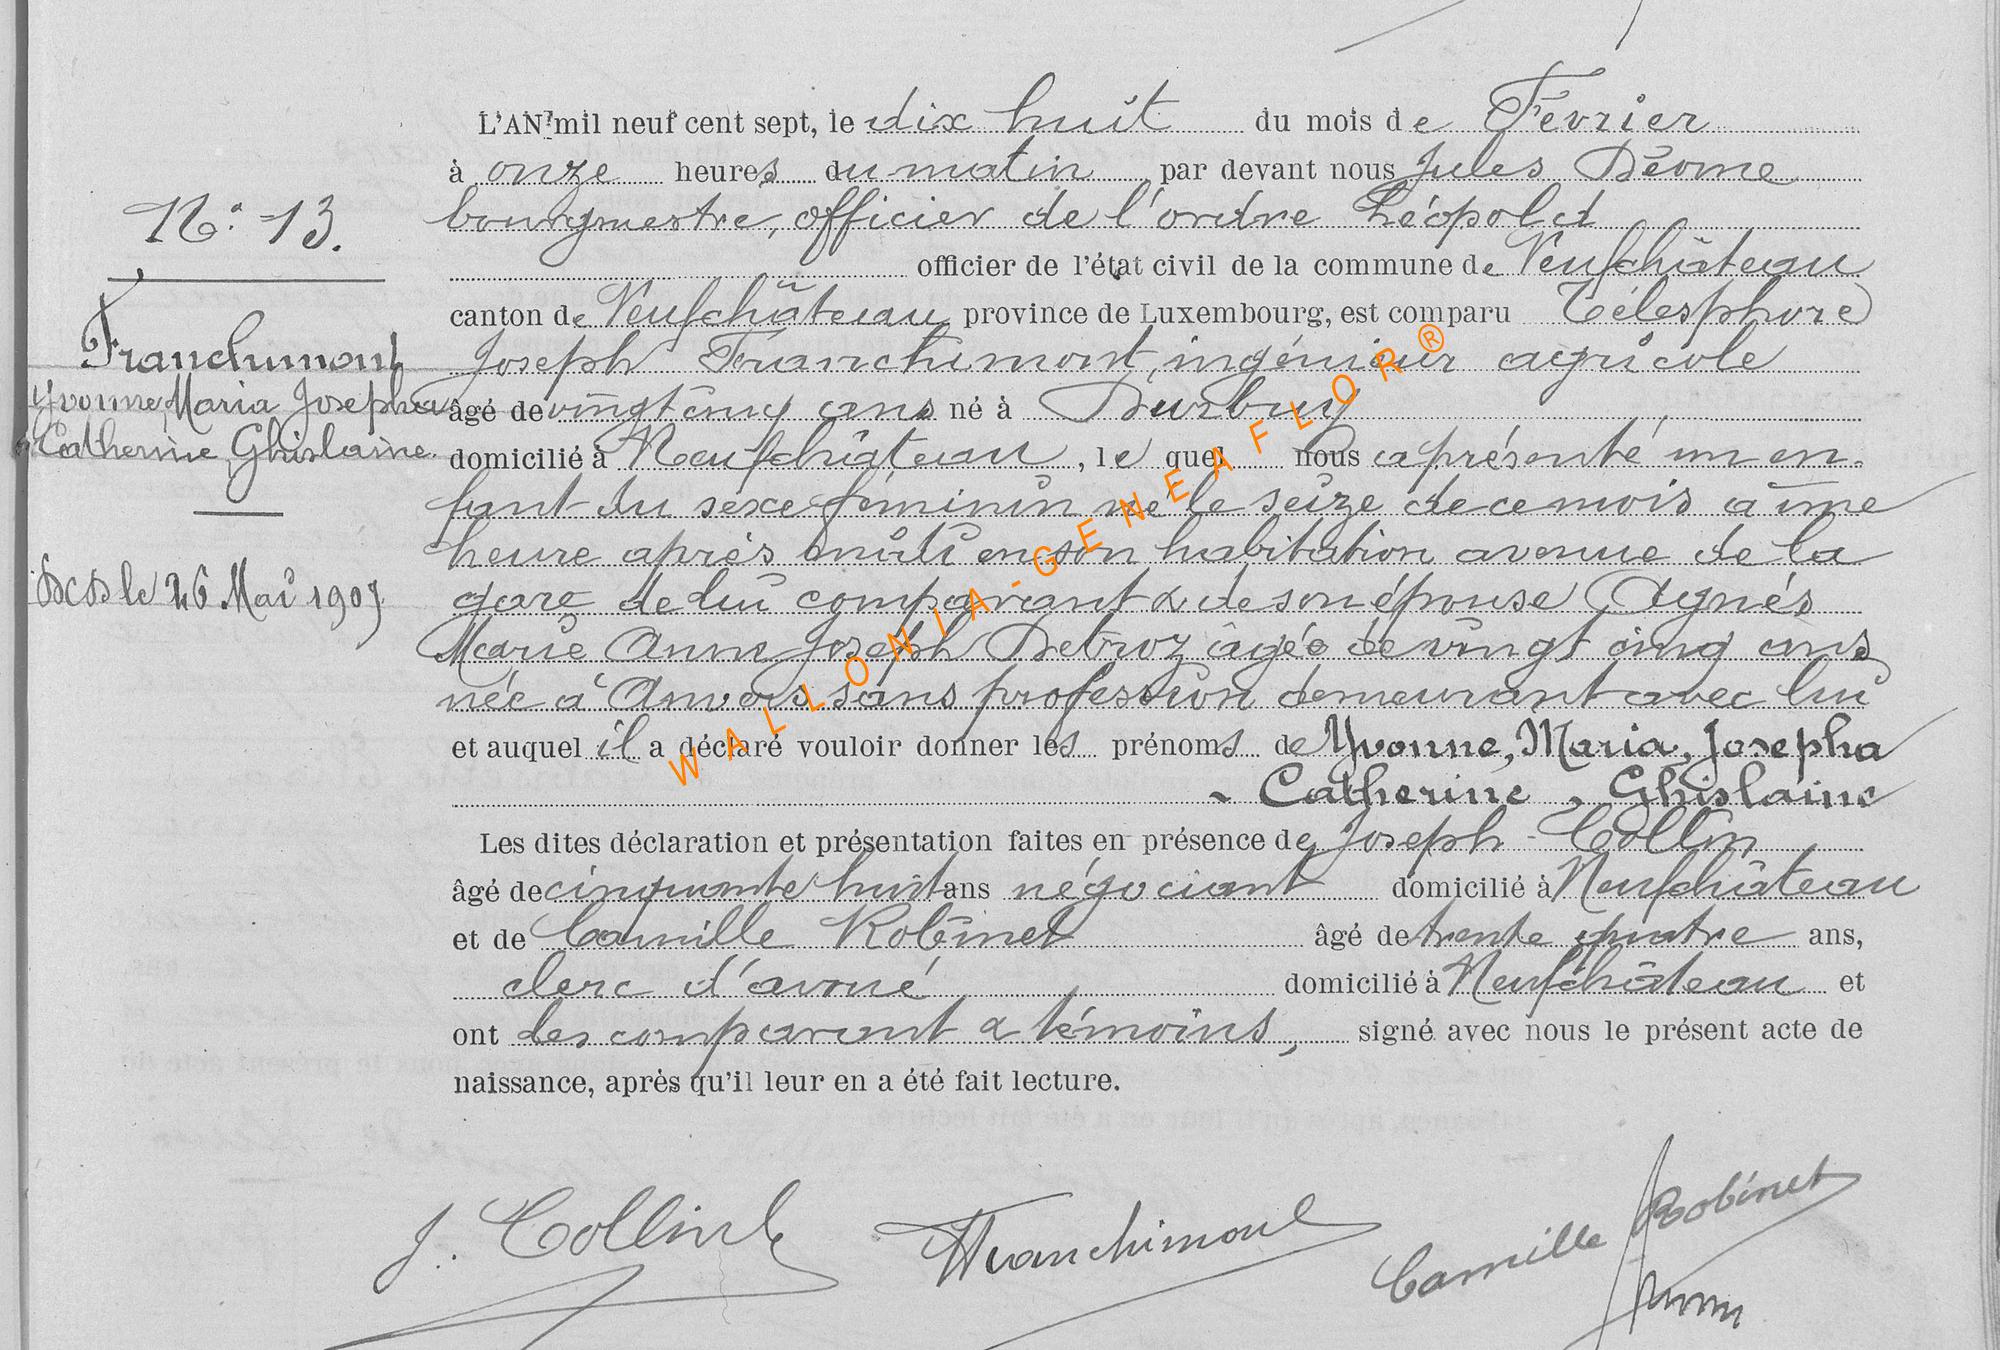 L'AN mil neuf cent sept, le dix huit du mois de Février
à onze heures du matin par devant nous Jules Déome
bourgmestre, officier de l'ordre Léopold
officier de l'état civil de la commune de Neufchâteau
canton de Neufchâteau province de Luxembourg, est comparu Télesphore
Joseph Franchimont, ingénieur agricole
âgé de vingt cinq ans né à Durbuy
domicilié à Neufchâteau, le quel nous a présenté un en-
fant du sexe féminin né le seize de ce mois a une
heure après midi en son habitation avenue de la
gare de lui comparant & de son épouse Agnés
Marie Anne Joseph Detroz âgée de vingt cinq ans
née à Anvers sans profession demeurant avec lui
et auquel il a déclaré vouloir donner les prénoms de Yvonne, Maria, Josepha
- Catherine, Ghislaine
Les dites déclaration et présentation faites en présence de Joseph Collin
âgé de cinquante huit ans négociant domicilié à Neufchâteau
et de Camille Robinet âgé de trente quatre ans,
clerc d'avoué domicilié à Neufchâteau et
ont les comparant & témoins, signé avec nous le présent acte de
naissance, après qu'il leur en a été fait lecture.
N° 13.
Franchimont
Yvonne Maria Josepha
Catherine Ghislaine
Dcd le 26 Mai 1907
J. Collin
Franchimont
Camille Robinet
WALLONIA-GENEAFLOR®